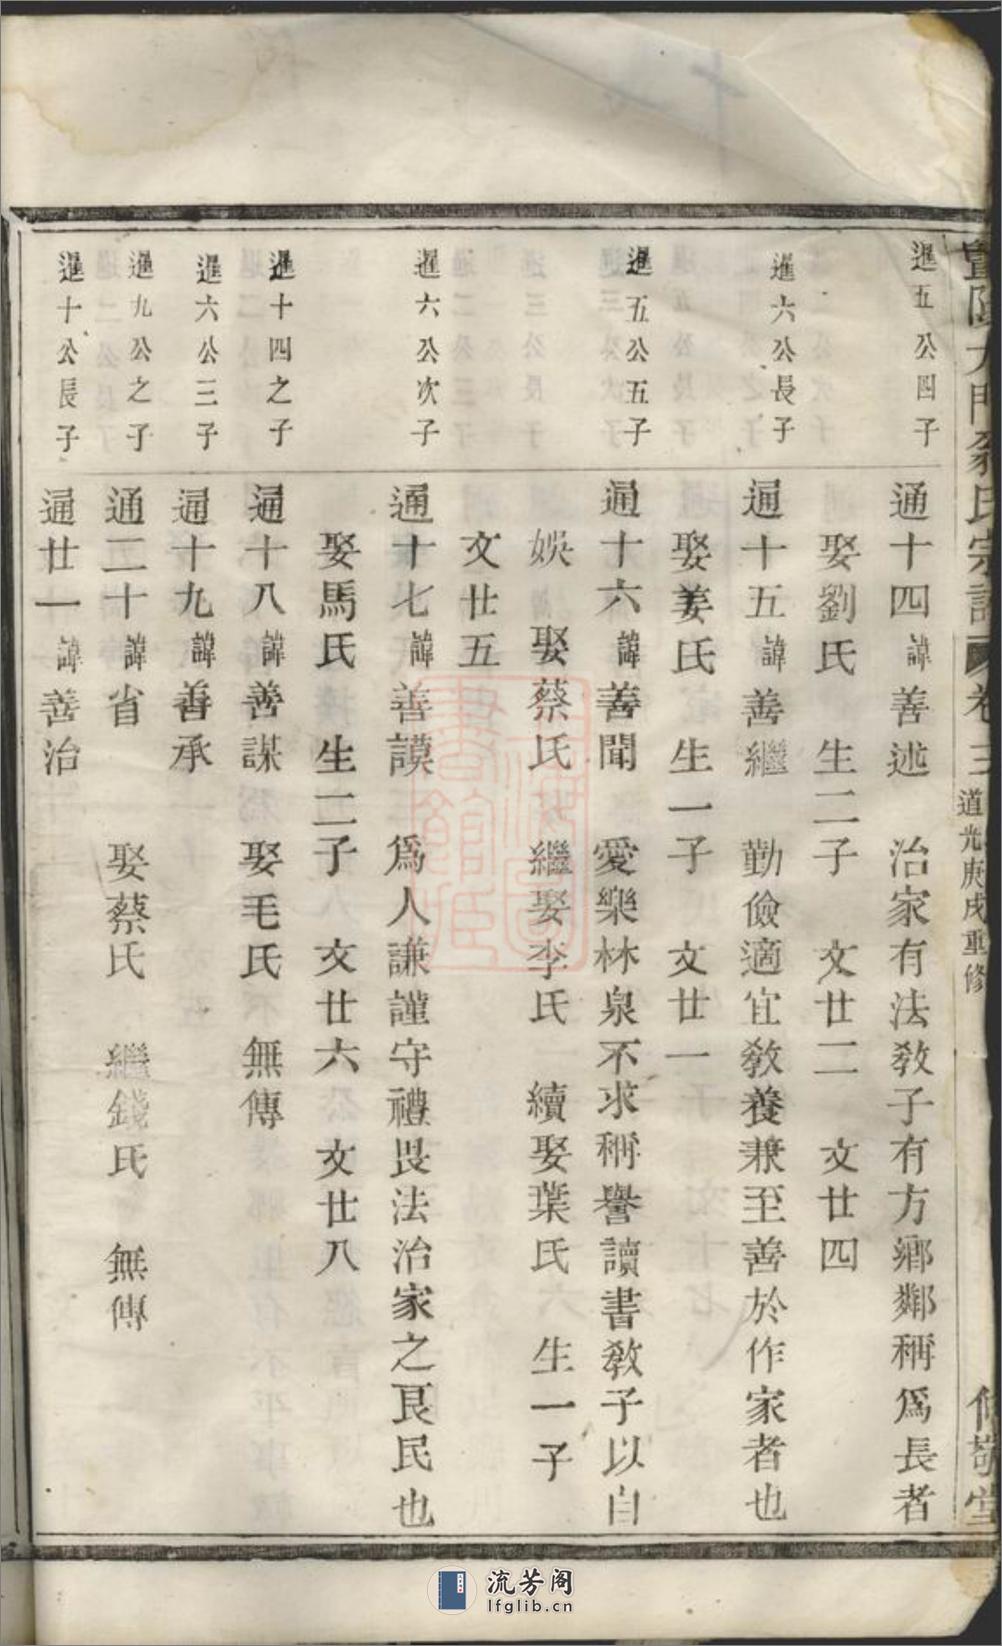 暨陽大門蔡氏宗譜 卷三 道光庚戌重修
暹五公四子
通十四諱善述 治家有法教子有方鄉鄰稱爲長者
娶劉氏 生二子 文廿二 文廿四
暹六公長子
通十五諱善繼 勤儉適宜教養兼至善於作家者也
娶姜氏 生一子 文廿一
暹五公五子
通十六諱善聞 愛樂林泉不求稱譽讀書教子以自
娛 娶蔡氏 繼娶李氏 續娶葉氏 生一子
文廿五
暹六公次子
通十七諱善謨 爲人謙謹守禮畏法治家之良民也
娶馬氏 生二子 文廿六 文廿八
暹十四之子
通十八諱善謀 娶毛氏 無傳
暹六公三子
通十九諱善承
暹九公之子
通二十諱省 娶蔡氏 繼錢氏 無傳
暹十公長子
通廿一諱善治
流芳阁
lfglib.cn